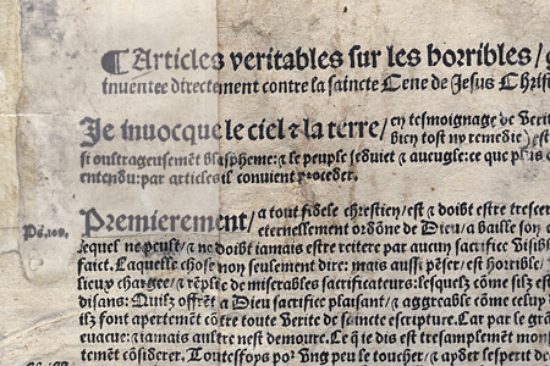 ¶ Articles veritables sur les horribles/ g
inuentee directement contre la saincte Cene de Jesus Chris
Je inuocque le ciel ⁊ la terre/ en tesmoignage de Verit
bien tost ny remedie) est
si oultrageusemēt blaspheme: ⁊ le peuple seduiet ⁊ aueugle: ce que plus
entendu: par articles il conuient proceder.
Premierement/ a tout fidele chrestien/ est ⁊ doibt estre trescer
eternellement ordōne de Dieu/ a baille son c
Ps. 109.
lequel ne peult/ ⁊ ne doibt iamais estre reitere par aucun sacrifice Visib
faict. Laquelle chose non seulement dire: mais aussi pēser/ est horrible/
lieux chargee/ ⁊ rēplie de miserables sacrificateurs: lesquelz cōme silz est
disans: quilz offrēt a Dieu sacrifice plaisant/ ⁊ aggreable cōme celuy
ilz font apertement cōtre toute Verite de saincte escripture. Car par le grā
euacue: ⁊ iamais aultre nest demoure. Ce q̄ ie dis est tresamplement mons
temēt cōsiderer. Toutesfoys po² Vng peu le toucher/ ⁊ ayder lesperit de